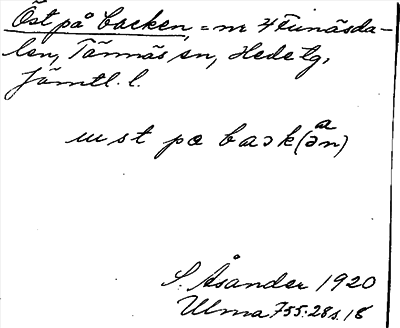 Öst på backen, = nr 4 Funäsda-
len, Tännäs sn, Hede tg,
Jämtl. l.
st pɑ bask(ən)
a
S. Åsander 1920
Ulma 755:28 s. 18